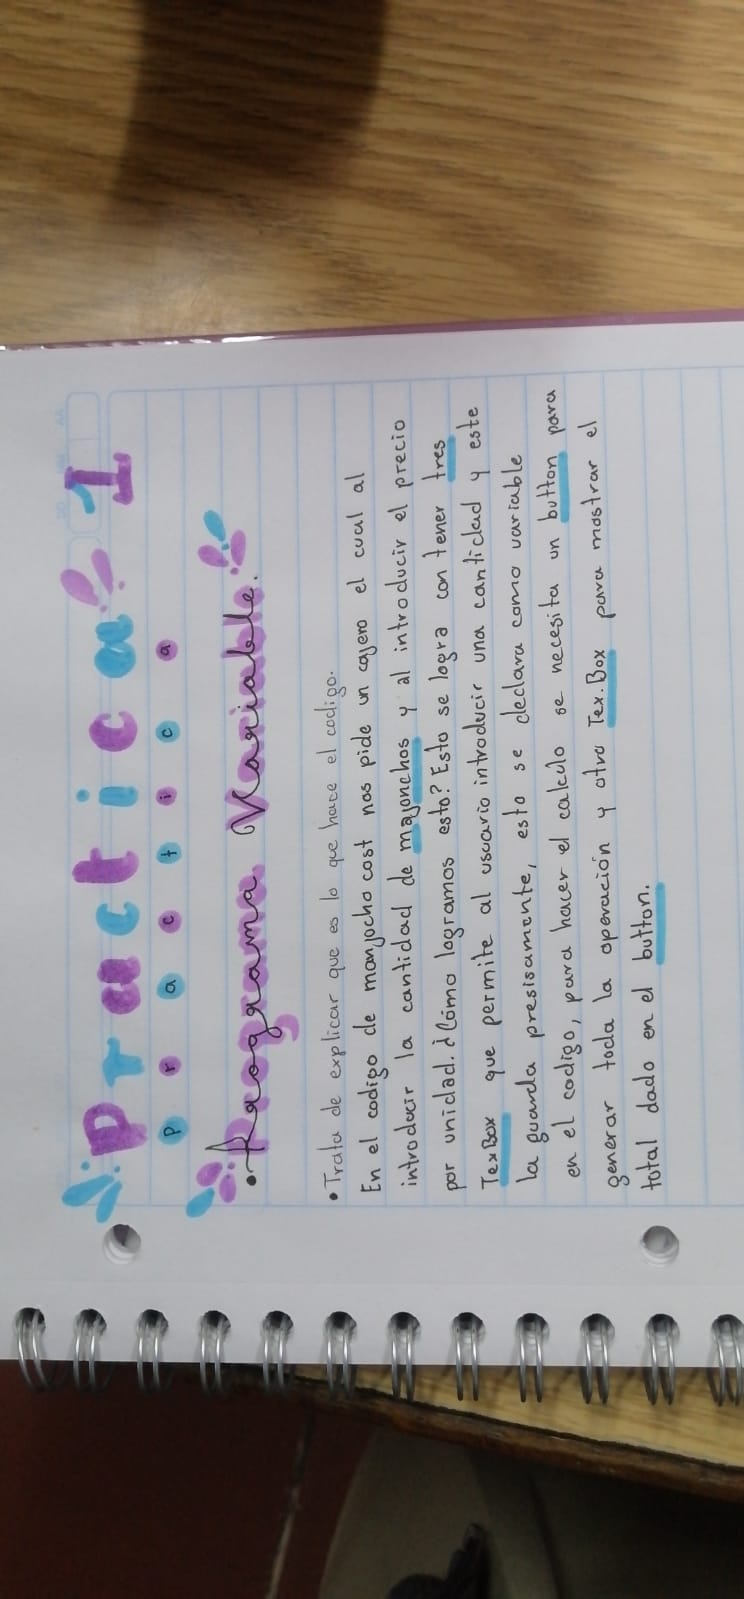 Practica 1
practica
• Programa Variable.
• Trata de explicar que es lo que hace el codigo.
En el codigo de manjocho cost nos pide un cajero el cual al
introducir la cantidad de majonchos y al introducir el precio
por unidad. ¿Cómo logramos esto? Esto se logra con tener tres
TexBox que permite al usuario introducir una cantidad y este
la guarda presisamente, esto se declara como variable
en el codigo, para hacer el calculo se necesita un button para
generar toda la operación y otro Tex.Box para mostrar el
total dado en el button.